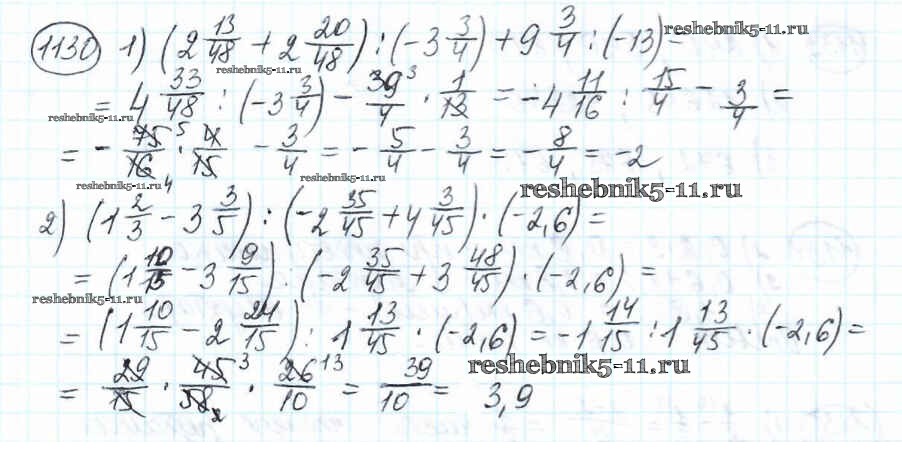 1130 1) (2 13/48 + 2 20/48) : (-3 3/4) + 9 3/4 : (-13) =
reshebnik5-11.ru
reshebnik5-11.ru
= 4 33/48 : (-3 3/4) - 39 3/4 · 1/13 = -4 11/16 : 15/4 - 3/4 =
reshebnik5-11.ru
= - 75 5/16 4 · 4/15 - 3/4 = - 5/4 - 3/4 = - 8/4 = -2
reshebnik5-11.ru
reshebnik5-11.ru
reshebnik5-11.ru
2) (1 2/3 - 3 3/5) : (-2 35/45 + 4 3/45) · (-2,6) =
= (1 10/15 - 3 9/15) : (-2 35/45 + 3 48/45) · (-2,6) =
reshebnik5-11.ru
= (1 10/15 - 2 24/15) : 1 13/45 · (-2,6) = -1 14/15 : 1 13/45 · (-2,6) =
reshebnik5-11.ru
= 29/15 · 45 3/58 2 · 26 13/10 = 39/10 = 3,9